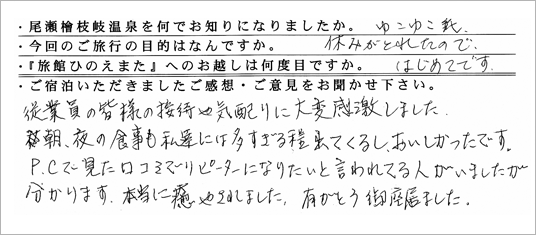 ・尾瀬檜枝岐温泉を何でお知りになりましたか。 ゆこゆこ誌.
・今回のご旅行の目的はなんですか。 休みがとれたので.
・『旅館ひのえまた』へのお越しは何度目ですか。 はじめてです.
・ご宿泊いただきましたご感想・ご意見をお聞かせ下さい。
従業員の皆様の接待や気配りに大変感激しました.
朝、夜の食事も私達には多すぎる程出てくるし、おいしかったです。
P.Cで見た口コミでリピーターになりたいと言われてる人がいましたが
分かります. 本当に癒やされました, 有がとう御座居ました。